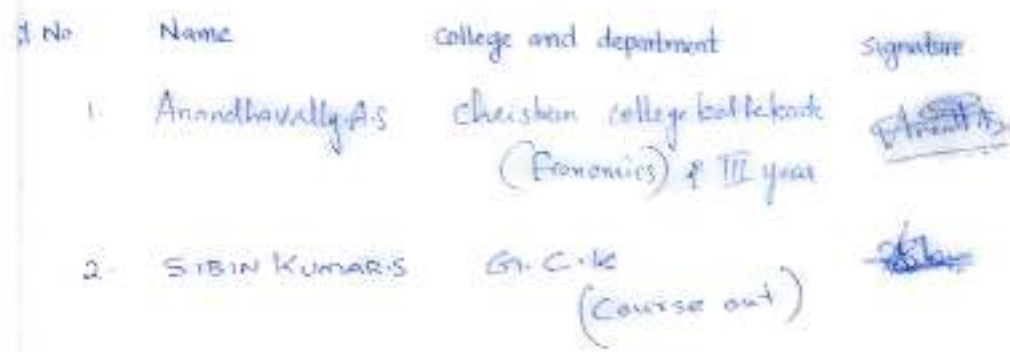 No Name College and department Signature
1. Anandhavally A.S Christian college kattakode
(Economics) III year
2. SIBIN KUMAR.S G.C.K
(Course out)